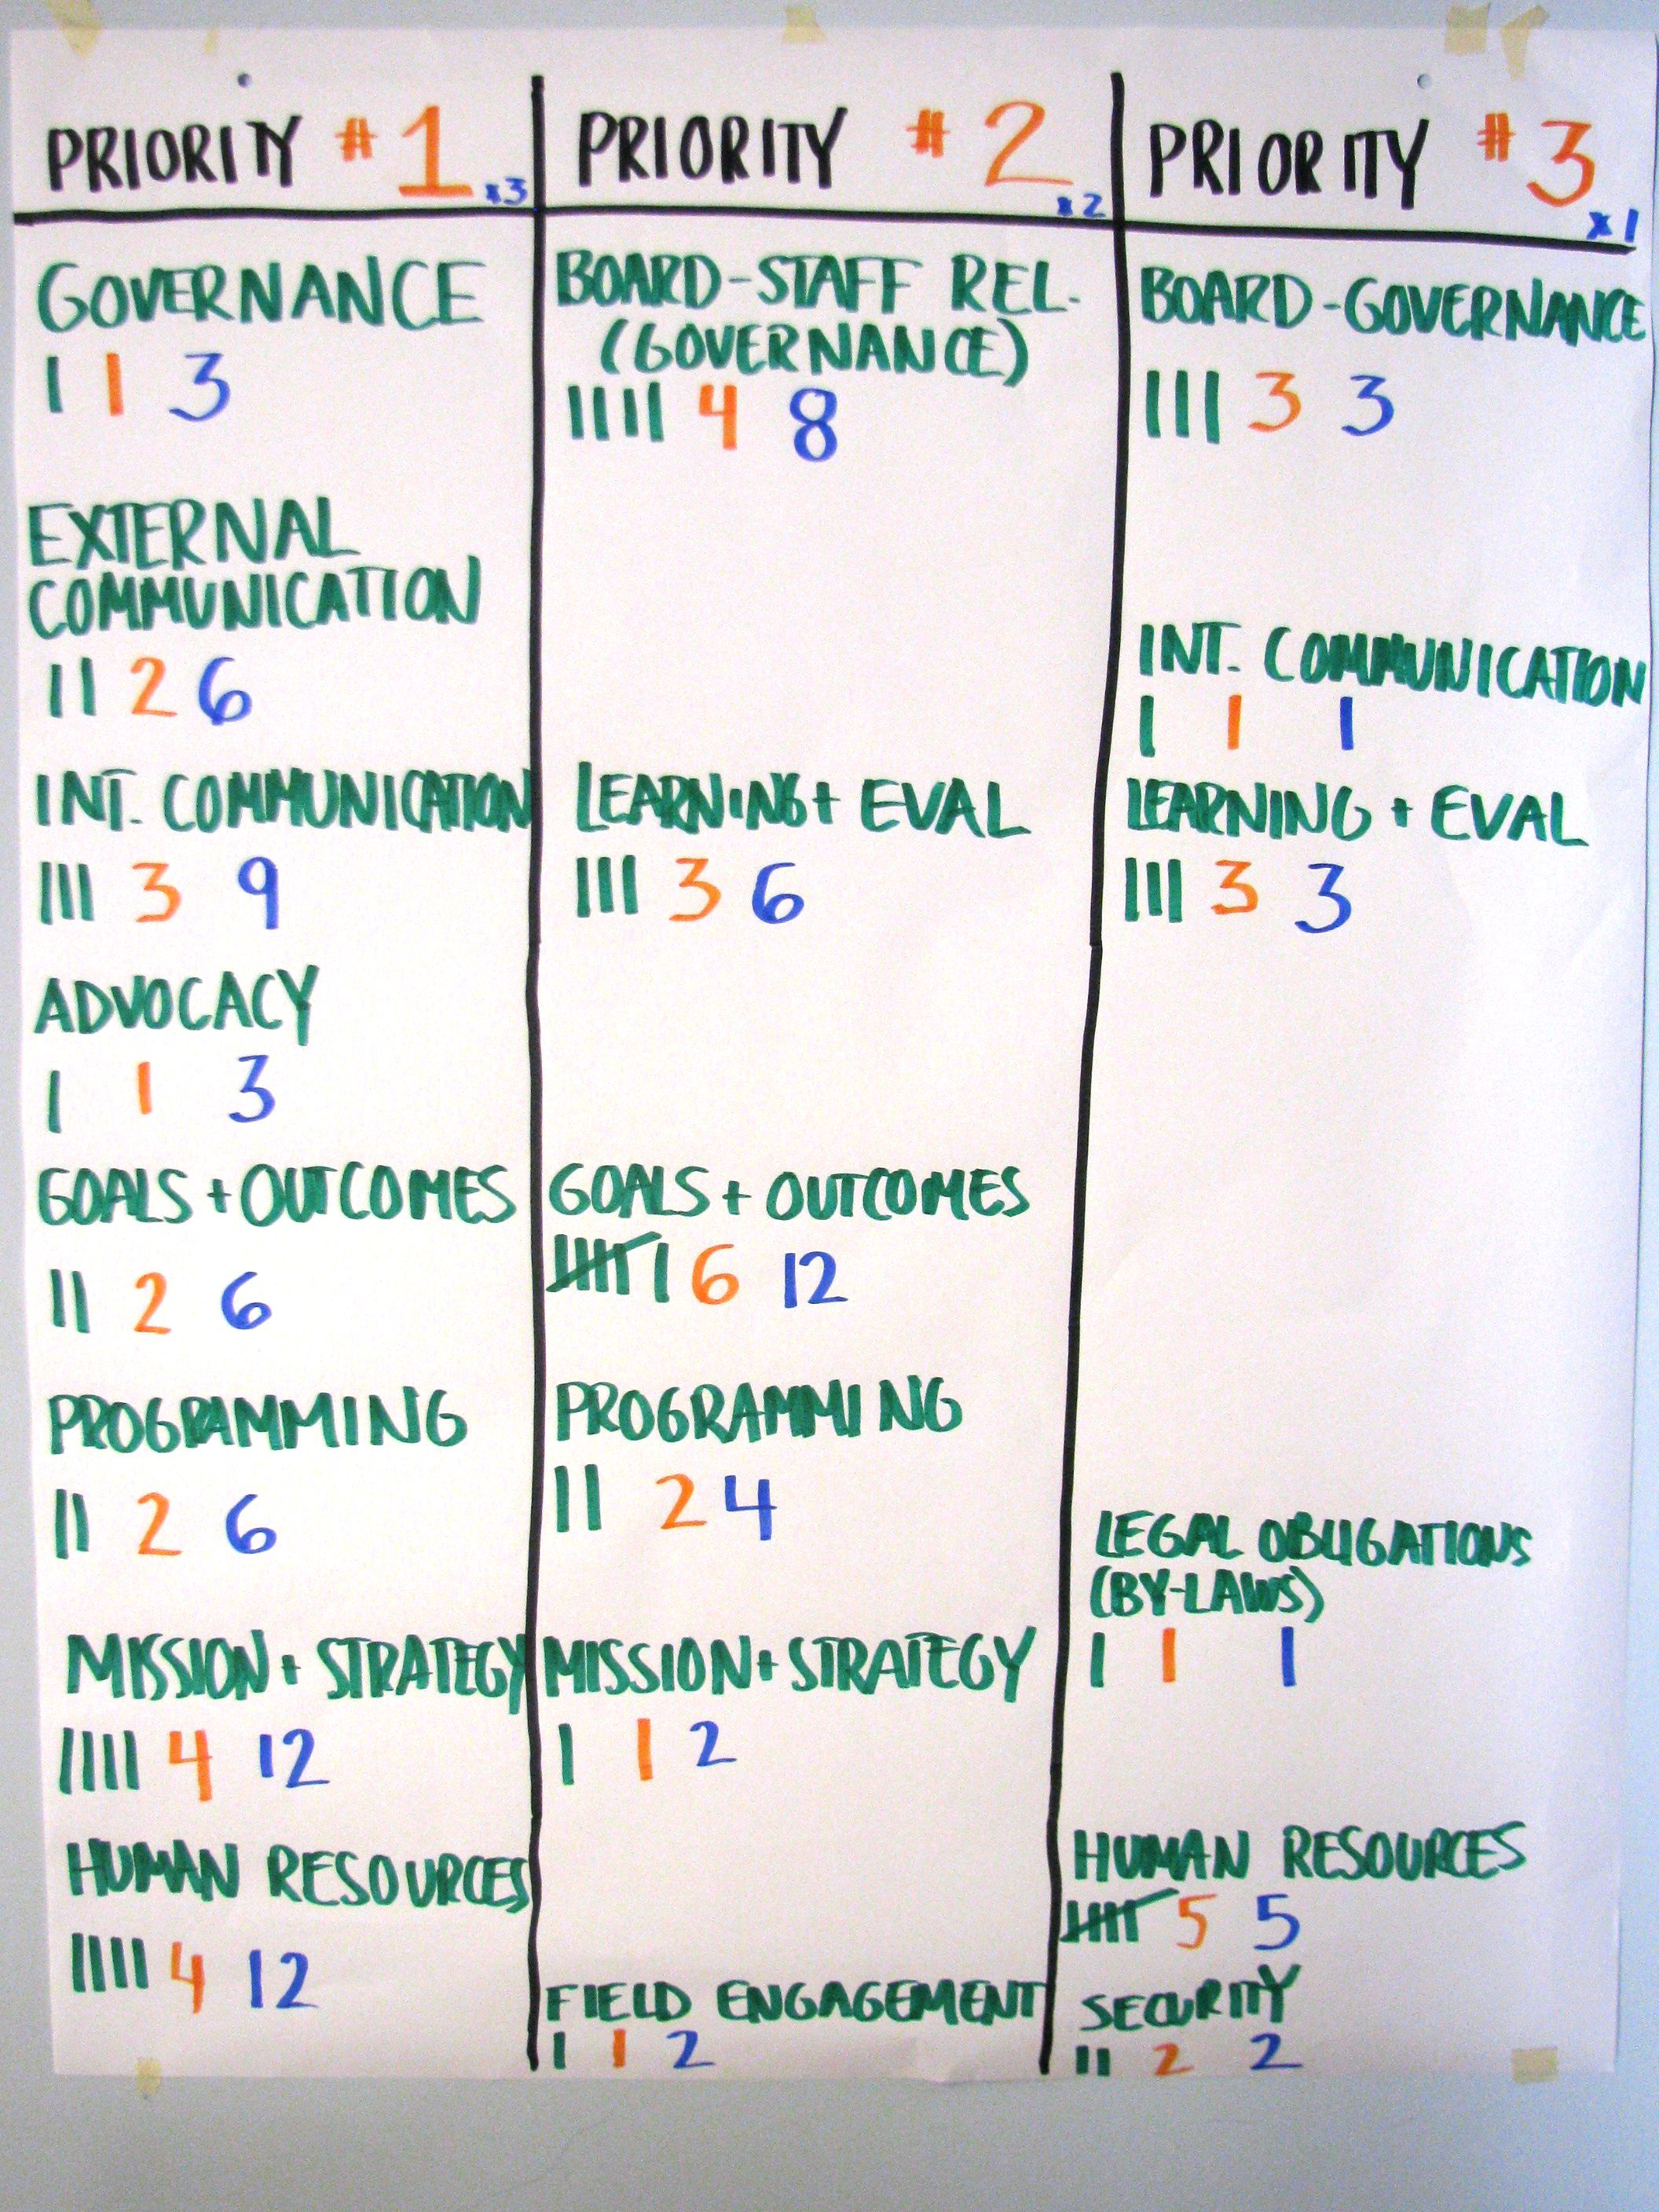 PRIORITY #1 x3
GOVERNANCE
I 1 3
EXTERNAL
COMMUNICATION
II 2 6
INT. COMMUNICATION
III 3 9
ADVOCACY
I 1 3
GOALS + OUTCOMES
II 2 6
PROGRAMMING
II 2 6
MISSION + STRATEGY
IIII 4 12
HUMAN RESOURCES
IIII 4 12
PRIORITY #2 x2
BOARD-STAFF REL.
(GOVERNANCE)
IIII 4 8
LEARNING + EVAL
III 3 6
GOALS + OUTCOMES
IIIII I 6 12
PROGRAMMING
II 2 4
MISSION + STRATEGY
I 1 2
FIELD ENGAGEMENT
I 1 2
PRIORITY #3 x1
BOARD-GOVERNANCE
III 3 3
INT. COMMUNICATION
I 1 1
LEARNING + EVAL
III 3 3
LEGAL OBLIGATIONS
(BY-LAWS)
I 1 1
HUMAN RESOURCES
IIIII 5 5
SECURITY
II 2 2